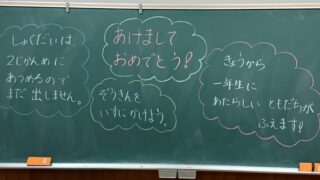 しゅくだいは、
2じかんめに
あつめるので
まだ出しません。
あけまして
おめでとう!
ぞうきんを
いすにかけよう。
きょうから
一年生に
あたらしい ともだちが
ふえます!